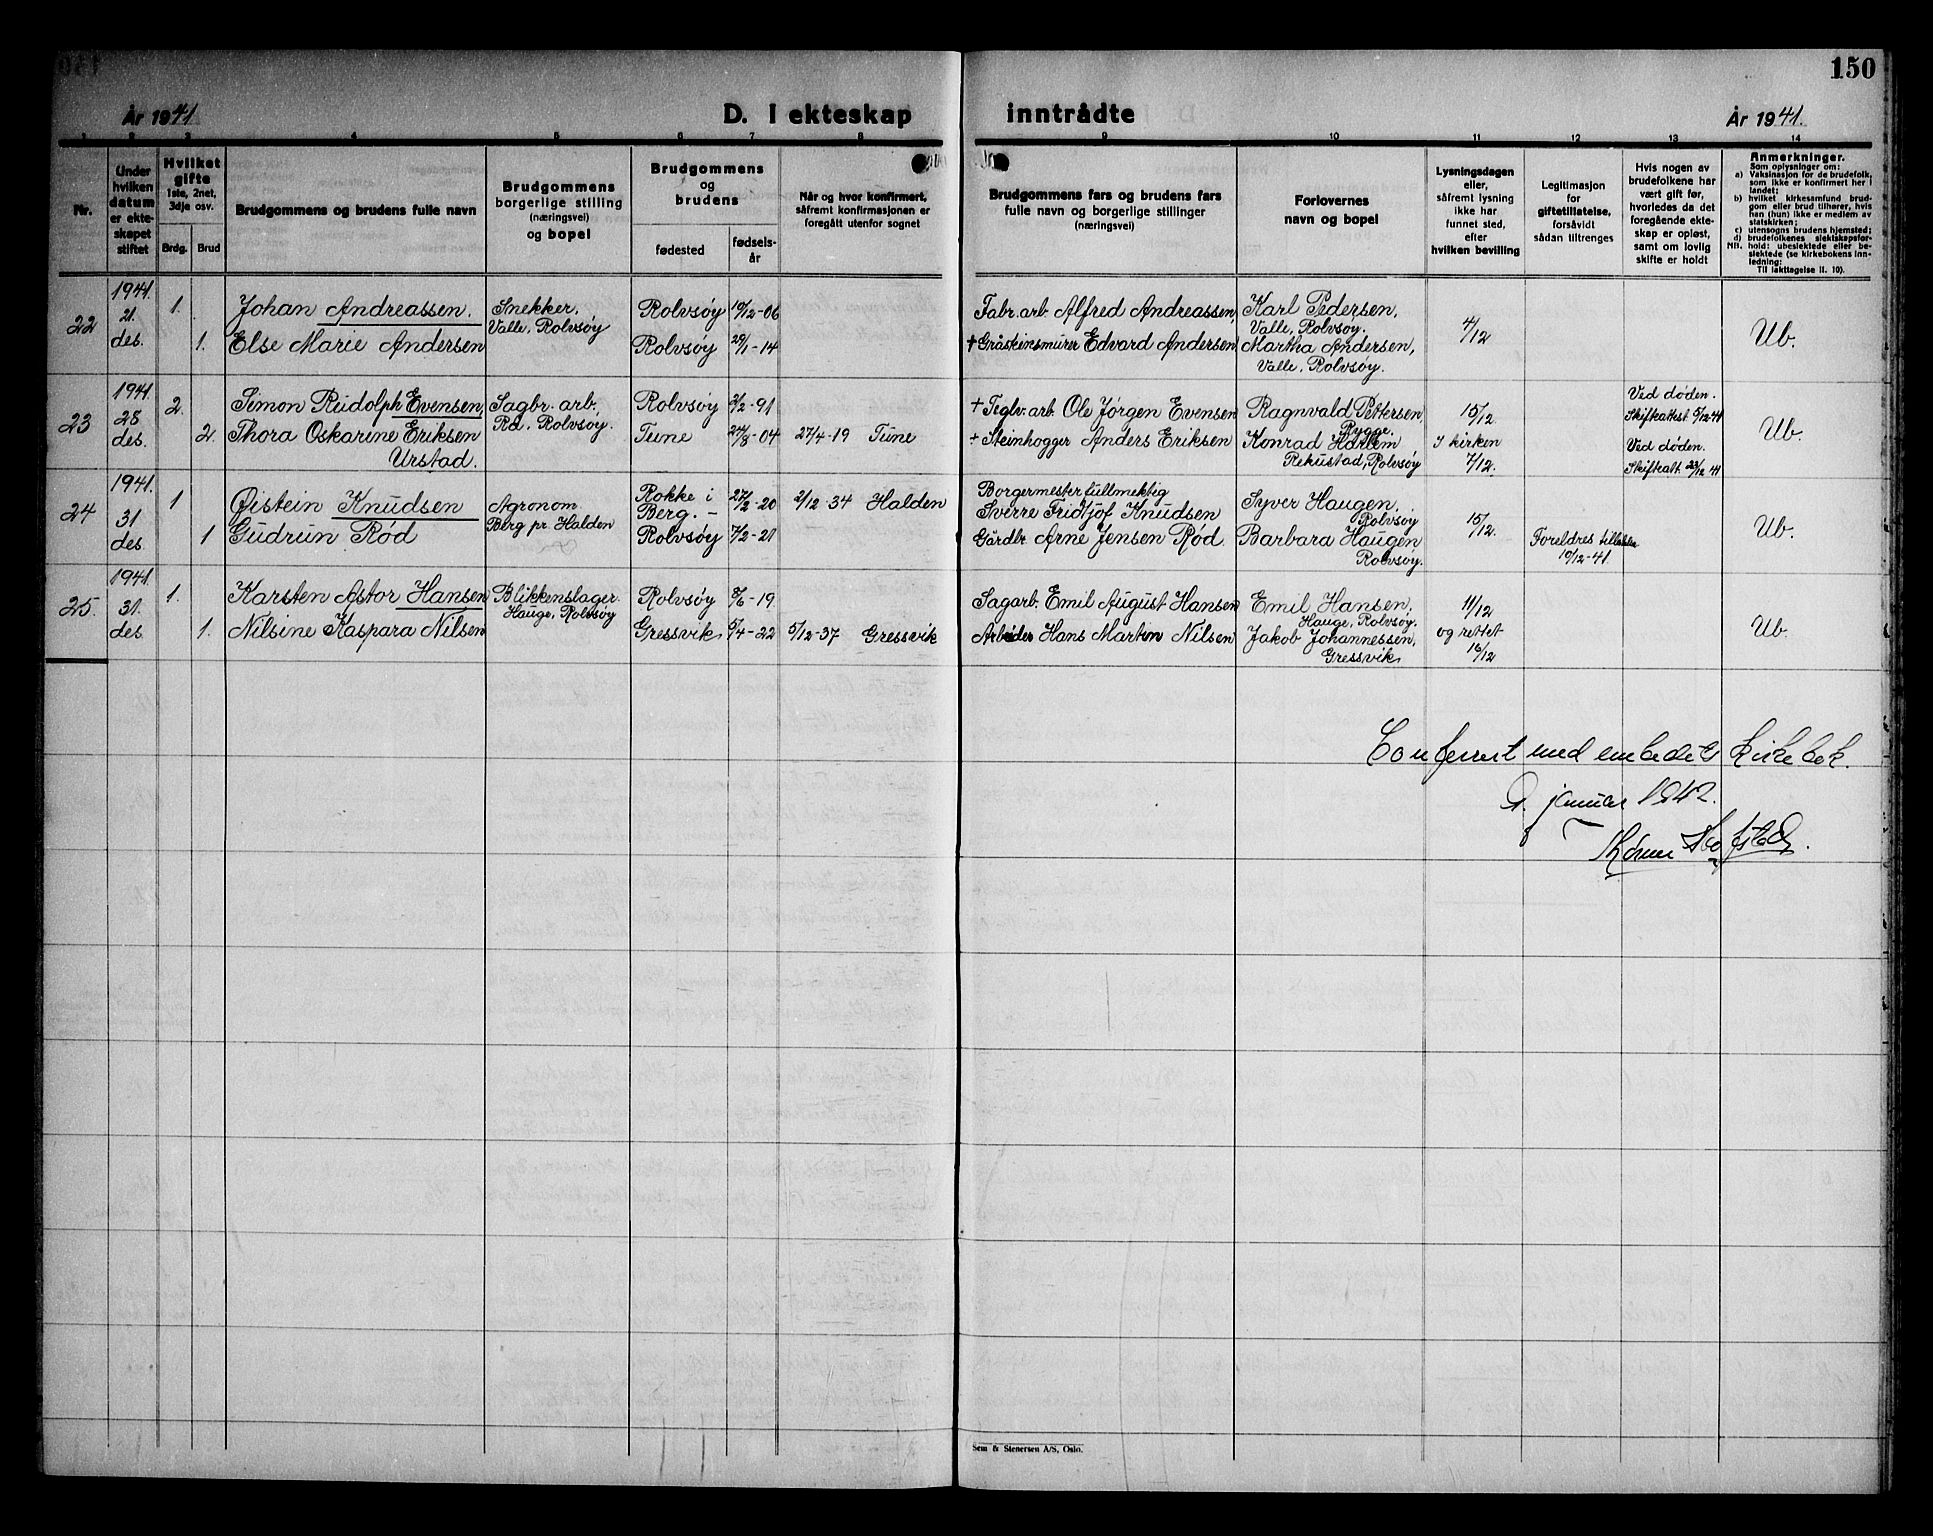 150
År 1941
D. I ekteskap inntrådte
År 1941.
1 2 3 4 5 6 7 8 9 10 11 12 13 14
Nr.
Under
hvilken
datum
er ekte-
skapet
stiftet
Hvilket
gifte
1ste, 2net,
3dje osv.
Brdg. Brud
Brudgommens og brudens fulle navn
Brudgommens
borgerlige stilling
(næringsvei)
og bopel
Brudgommens
og
brudens
fødested
fødsels-
år
Når og hvor konfirmert,
såfremt konfirmasjonen er
foregått utenfor sognet
Brudgommens fars og brudens fars
fulle navn og borgerlige stillinger
(næringsvei)
Forlovernes
navn og bopel
Lysningsdagen
eller,
såfremt lysning
ikke har
funnet sted,
efter
hvilken bevilling
Legitimasjon
for
giftetillatelse,
forsåvidt
sådan tiltrenges
Hvis nogen av
brudefolkene har
vært gift før,
hvorledes da det
foregående ekte-
skap er opløst,
samt om lovlig
skifte er holdt
Anmerkninger.
Som oplysninger om:
a) Vaksinasjon for de brudefolk,
som ikke er konfirmert her i
landet;
b) hvilket kirkesamfund brud-
gom eller brud tilhører, hvis
han (hun) ikke er medlem av
statskirken;
c) utensogns brudens hjemsted;
d) brudefolkenes slektskapsfor-
hold: ubeslektede eller be-
slektede (se kirkebokens inn-
ledning:
Til iakttagelse II. 10).
22 1941. 21. des. 1. Johan Andreassen. Snekker, Valle, Rolvsøy Rolvsøy 19/12-06 Fabr. arb. Alfred Andreassen, Karl Pedersen, Valle, Rolvsøy. 4/12 Ub.
1. Else Marie Andersen Rolvsøy 29/1-14 + Gråsteinsmurer Edvard Andersen Martha Andersen, Valle, Rolvsøy.
23 1941. 28 des. 2. Simon Rudolph Evensen, Sagbr. arb., Rd. Rolvsøy. Rolvsøy 2/2-91 + Teglv. arb. Ole Jørgen Evensen Ragnvald Pettersen, Rygge. 15/12 Ved døden. Skifteattest 5/12-41 Ub.
2. Thora Oskarine Eriksen Urstad. Tune 24/8-04 27/4-19 Tune + Steinhogger Anders Eriksen Konrad Harlem Rekustad, Rolvsøy I kirken 7/12. Ved døden. Skifteatt. 23/12 41
24 1941. 31 des. 1 Øistein Knudsen Agronom Berg pr. Halden Rokke i Berg. - 27/2-20 2/12-34 Halden Borgermesterfullmektig Sverre Fridtjof Knudsen Syver Haugen, Rolvsøy 15/12. Ub.
1 Gudrun Rød Rolvsøy 7/2-21 Gårdbr. Arne Jensen Rød. Barbara Haugen Rolvsøy. Foreldres 10/12-41.
25. 1941. 31. des. 1. Karsten Astor Hansen Blikkenslager. Hauge, Rolvsøy Rolvsøy 8/6-19 Sagarb. Emil August Hansen Emil Hansen, Hauge, Rolvsøy. 11/12 Ub.
1. Nilsine Kaspara Nilsen Gressvik 5/4-22 5/12-37 Gressvik Arbeider Hans Martin Nilsen Jakob Johannessen, Gressvik og rettet 16/12
Conferert med embedets kirkebok.
januar 1942.
Sem & Stenersen A/S, Oslo.